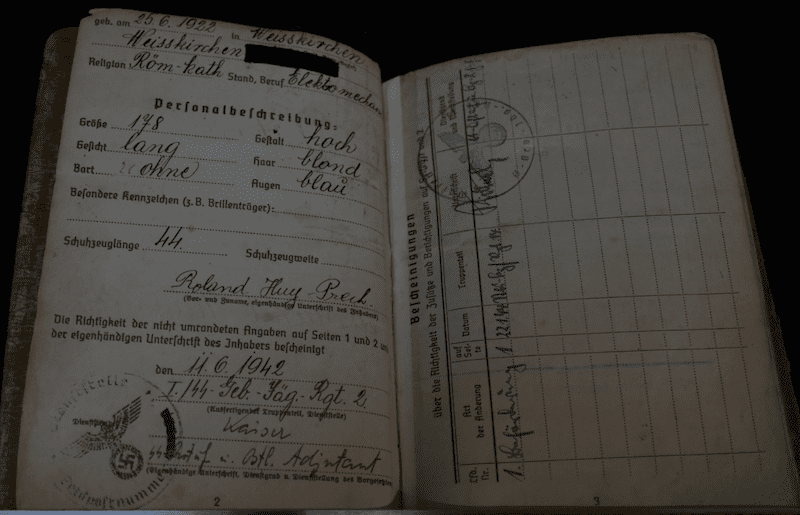 geb. am 25.6.1922 in Weisskirchen
Weisskirchen
Religion Röm-kath Stand, Beruf Elektromechan
Personalbeschreibung:
Größe 178 Gestalt hoch
Gesicht lang Haar blond
Bart ohne Augen blau
Besondere Kennzeichen (z. B. Brillenträger):
Schuhzeuglänge 44. Schuhzeugweite
Roland Huy Prech.
(Vor- und Zuname, eigenhändige Unterschrift des Inhabers)
Die Richtigkeit der nicht umrandeten Angaben auf Seiten 1 und 2 und
der eigenhändigen Unterschrift des Inhabers bescheinigt
den 11.6.1942
I./SS-Geb.-Jäg.-Rgt. 2
(Ausfertigender Truppenteil, Dienststelle)
Kaiser
u. Btl. Adjutant
(Eigenhändige Unterschrift, Dienstgrad u. Dienststellung des Vorgesetzten)
Feldpostnummer
2
Bescheinigungen
über die Richtigkeit der Zusätze und Berichtigungen auf Seiten 1 und 2
Lfd. Nr. Art der Änderung auf Seite Datum Truppenteil
1. Beförderung 1
3